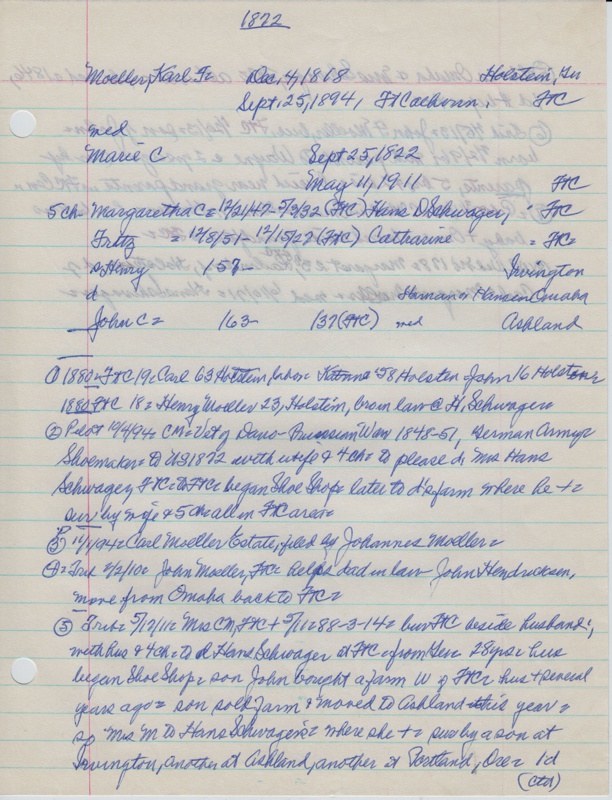 1872
Moeller, Karl F= Dec, 4, 1818 Holstein, Ger
Sept. 25, 1894, FtCalhoun, FtC
med
Marie C Sept 25, 1822
May 11, 1911 FtC
5 ch- Margaretha C= 12/21/47- 5/3/32 (FtC) Hans D Schwager, = FtC
Fritz = 12/8/51- 12/15/27 (FtC) Catharine = FtC=
Henry 157- Irvington
d Haman or Hansen Omaha
John C= 163- 137 (FtC) med Ashland
① 1880= FtC 19= Carl 63 Holstein, labor= '58 Holsten John 16 Holstein
1880 FtC 18= Henry Moeller 23, Holstein, bro in law @ H, Schwager=
② Pilot 10/4/94= CM= Vet of Dano-Prussian War 1848-51, German Army=
Shoemaker= to US 1872 with wife & 4 ch= to please d, Mrs Hans
Schwager, FtC= to FtC= began Shoe Shop= later to d's farm where he +=
sur by wife & 5 ch all in FtC area=
③ 11/1/94= Carl Moeller Estate, filed by Johannes Moeller=
④= Trib 2/2/10= John Moeller, FtC= helps dad in law John Hendricksen,
move from Omaha back to FtC=
⑤ Trib= 5/17/11= Mrs CM, FtC + 5/11= 88-3-14= bur FtC beside husband:,
with hus & 4 ch= to d Hans Schwager at FtC= from Ger= 28 yrs= hus
began Shoe Shop= son John bought a farm W of FtC= hus + several
years ago= son sold farm & moved to Ashland this year=
so Mrs M to Hans Schwagers= where she += sur by a son at
Irvington, another at Ashland, another at Portland, Ore= 1d
(ctd)